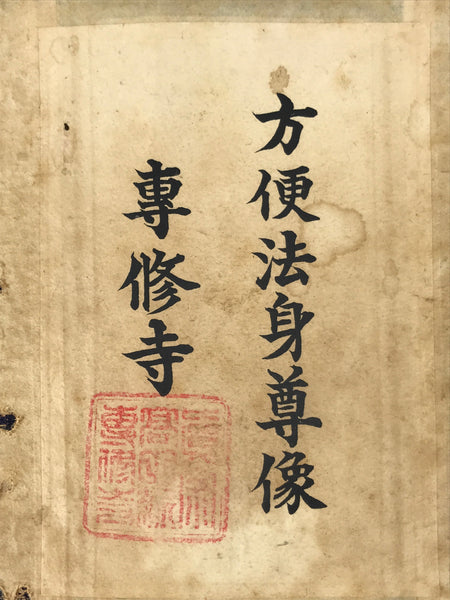 方便法身尊像
專修寺